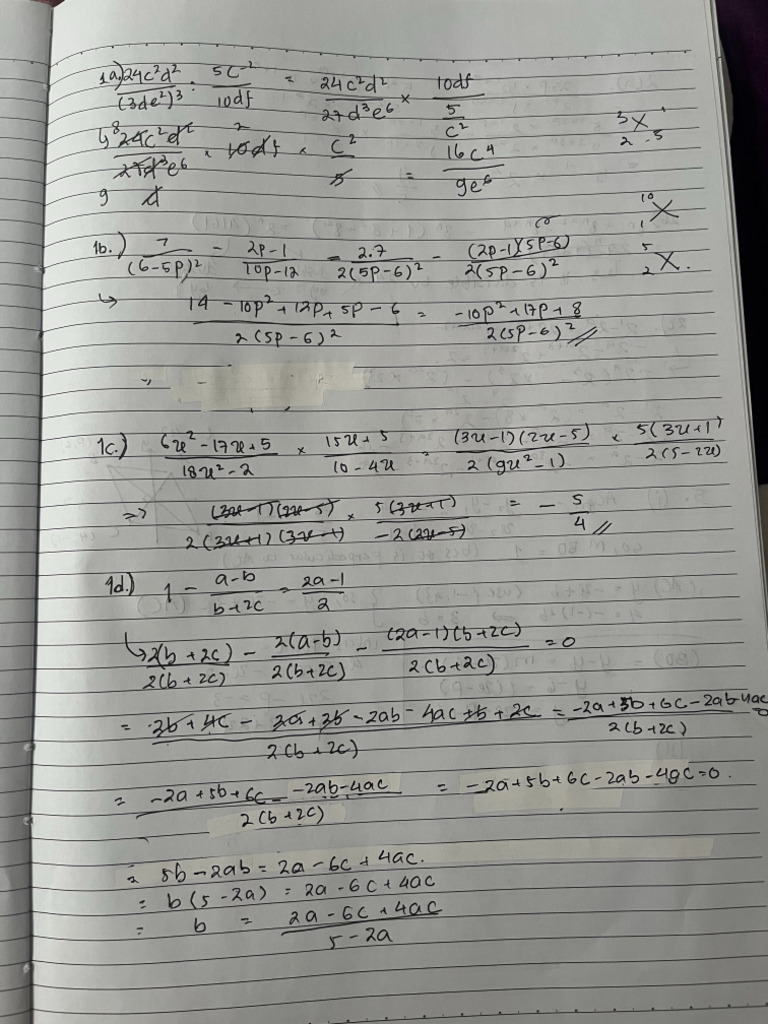 1a.) 24c²d² / (3de²)³ : 5c⁻² / 10df = 24c²d² / 27d³e⁶ × 10df / (5 / c²)
3 1
2 -5
↳ 8 24c²d² / 27d³e⁶ × 2 10df × c² / 5 = 16c⁴ / 9e⁶
9 d
10
1
1b.) 7 / (6-5p)² - 2p-1 / 10p-12 = 2.7 / 2(5p-6)² - (2p-1)(5p-6) / 2(5p-6)²
5
2
↳ 14 - 10p² + 12p + 5p - 6 / 2(5p-6)² = -10p² + 17p + 8 / 2(5p-6)² //
1c.) 6x² - 17x + 5 / 18x² - 2 × 15x + 5 / 10 - 4x = (3x-1)(2x-5) / 2(9x²-1) × 5(3x+1) / 2(5-2x)
=> (3x-1)(2x-5) / 2(3x+1)(3x-1) × 5(3x+1) / -2(2x-5) = - 5 / 4 //
1d.) 1 - a-b / b+2c = 2a-1 / 2
↳ 2(b+2c) / 2(b+2c) - 2(a-b) / 2(b+2c) - (2a-1)(b+2c) / 2(b+2c) = 0
= 2b + 4c - 2a + 2b - 2ab - 4ac + b + 2c / 2(b+2c) = -2a + 5b + 6c - 2ab - 4ac / 2(b+2c)
= -2a + 5b + 6c - 2ab - 4ac / 2(b+2c) = -2a + 5b + 6c - 2ab - 4ac = 0.
= 5b - 2ab = 2a - 6c + 4ac.
= b(5 - 2a) = 2a - 6c + 4ac
= b = 2a - 6c + 4ac / 5 - 2a